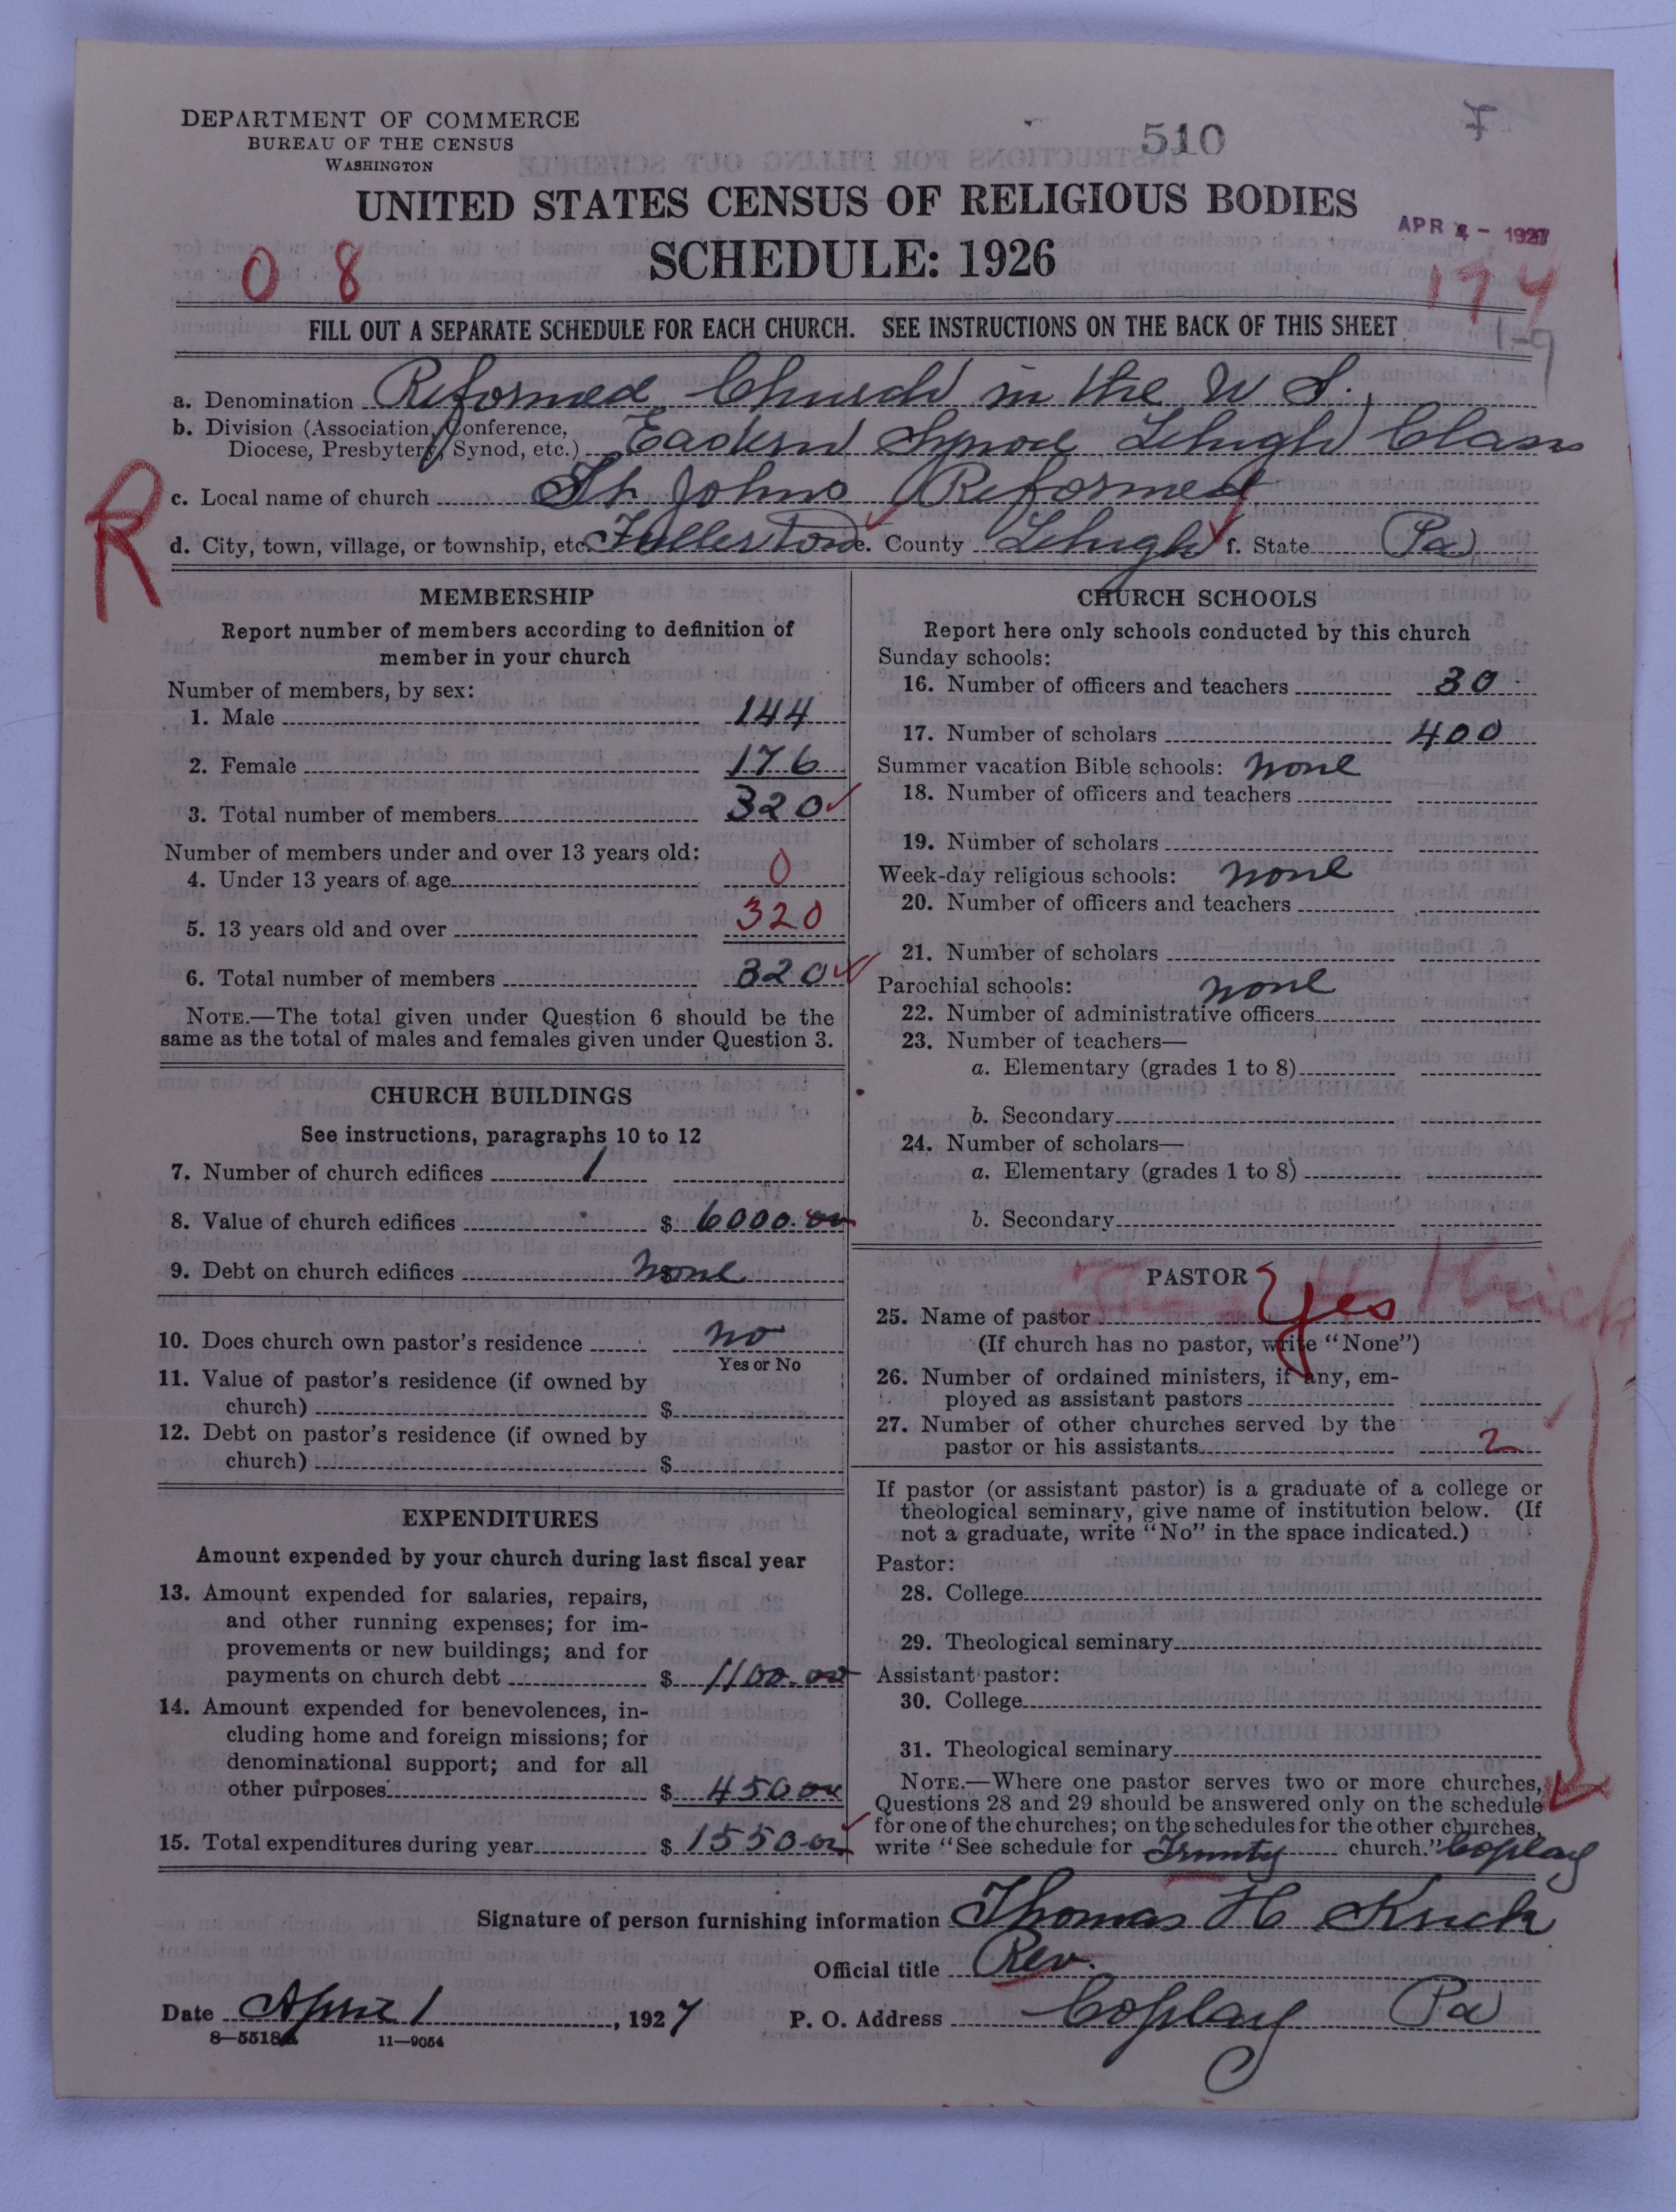 DEPARTMENT OF COMMERCE
BUREAU OF THE CENSUS
WASHINGTON
510
F
UNITED STATES CENSUS OF RELIGIOUS BODIES
SCHEDULE: 1926
APR 4 - 1927
0 8
174
1-9
FILL OUT A SEPARATE SCHEDULE FOR EACH CHURCH. SEE INSTRUCTIONS ON THE BACK OF THIS SHEET
a. Denomination Reformed Church in the U S.
b. Division (Association, Conference,
Diocese, Presbytery, Synod, etc.) Eastern Synod Lehigh Classis
R
c. Local name of church St. Johns Reformed
d. City, town, village, or township, etc. Fullerton e. County Lehigh f. State Pa
MEMBERSHIP
Report number of members according to definition of
member in your church
Number of members, by sex:
1. Male 144
2. Female 176
3. Total number of members 320
Number of members under and over 13 years old:
4. Under 13 years of age 0
5. 13 years old and over 320
6. Total number of members 320
NOTE.—The total given under Question 6 should be the
same as the total of males and females given under Question 3.
CHURCH BUILDINGS
See instructions, paragraphs 10 to 12
7. Number of church edifices 1
8. Value of church edifices $ 6000.00
9. Debt on church edifices none
10. Does church own pastor's residence no
Yes or No
11. Value of pastor's residence (if owned by
church) $
12. Debt on pastor's residence (if owned by
church) $
EXPENDITURES
Amount expended by your church during last fiscal year
13. Amount expended for salaries, repairs,
and other running expenses; for im-
provements or new buildings; and for
payments on church debt $ 1100.00
14. Amount expended for benevolences, in-
cluding home and foreign missions; for
denominational support; and for all
other purposes $ 450 00
15. Total expenditures during year $ 1550.00
CHURCH SCHOOLS
Report here only schools conducted by this church
Sunday schools:
16. Number of officers and teachers 30
17. Number of scholars 400
Summer vacation Bible schools: none
18. Number of officers and teachers
19. Number of scholars
Week-day religious schools: none
20. Number of officers and teachers
21. Number of scholars
Parochial schools: none
22. Number of administrative officers
23. Number of teachers—
a. Elementary (grades 1 to 8)
b. Secondary
24. Number of scholars—
a. Elementary (grades 1 to 8)
b. Secondary
PASTOR
25. Name of pastor Yes
(If church has no pastor, write "None")
26. Number of ordained ministers, if any, em-
ployed as assistant pastors
27. Number of other churches served by the
pastor or his assistants 2
If pastor (or assistant pastor) is a graduate of a college or
theological seminary, give name of institution below. (If
not a graduate, write "No" in the space indicated.)
Pastor:
28. College
29. Theological seminary
Assistant pastor:
30. College
31. Theological seminary
NOTE.—Where one pastor serves two or more churches,
Questions 28 and 29 should be answered only on the schedule
for one of the churches; on the schedules for the other churches,
write "See schedule for Trinity church." Coplay
Signature of person furnishing information Thomas H Krick
Official title Rev.
Date April 1, 1927 P. O. Address Coplay Pa
8—5518A 11—9054